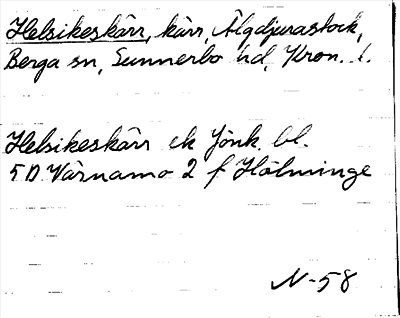 Helsikeskärr, kärr, Älgdjurastock,
Berga sn, Sunnerbo hd, Kron. l.
Helsikeskärr ek Jönk. bl.
5D Värnamo 2 f Hölminge
N-58